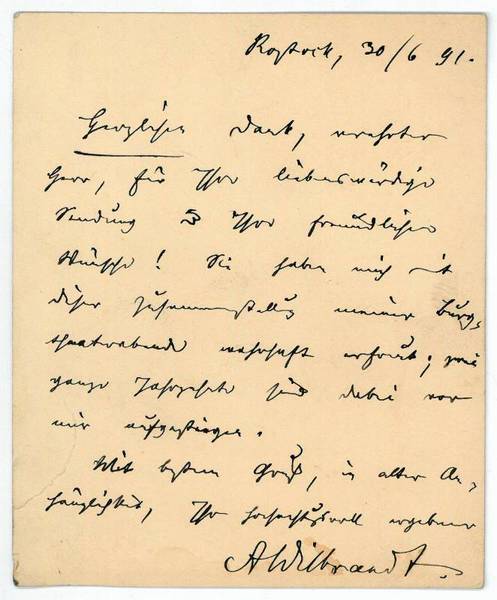 Rostock, 30/6 91.
Herzlichen Dank, verehrter
Herr, für Ihre liebenswürdige
Sendung u Ihre freundlichen
Wünsche! Sie haben mich mit
dieser Zusammenstellung meiner Burg-
theaterabende wahrhaft erfreut;
ganze Jahrzehnte sind dabei vor
mir aufgestiegen.
Mit bestem Gruß, in alter An-
hänglichkeit, Ihr hochachtungsvoll ergebener
AWilbrandt.